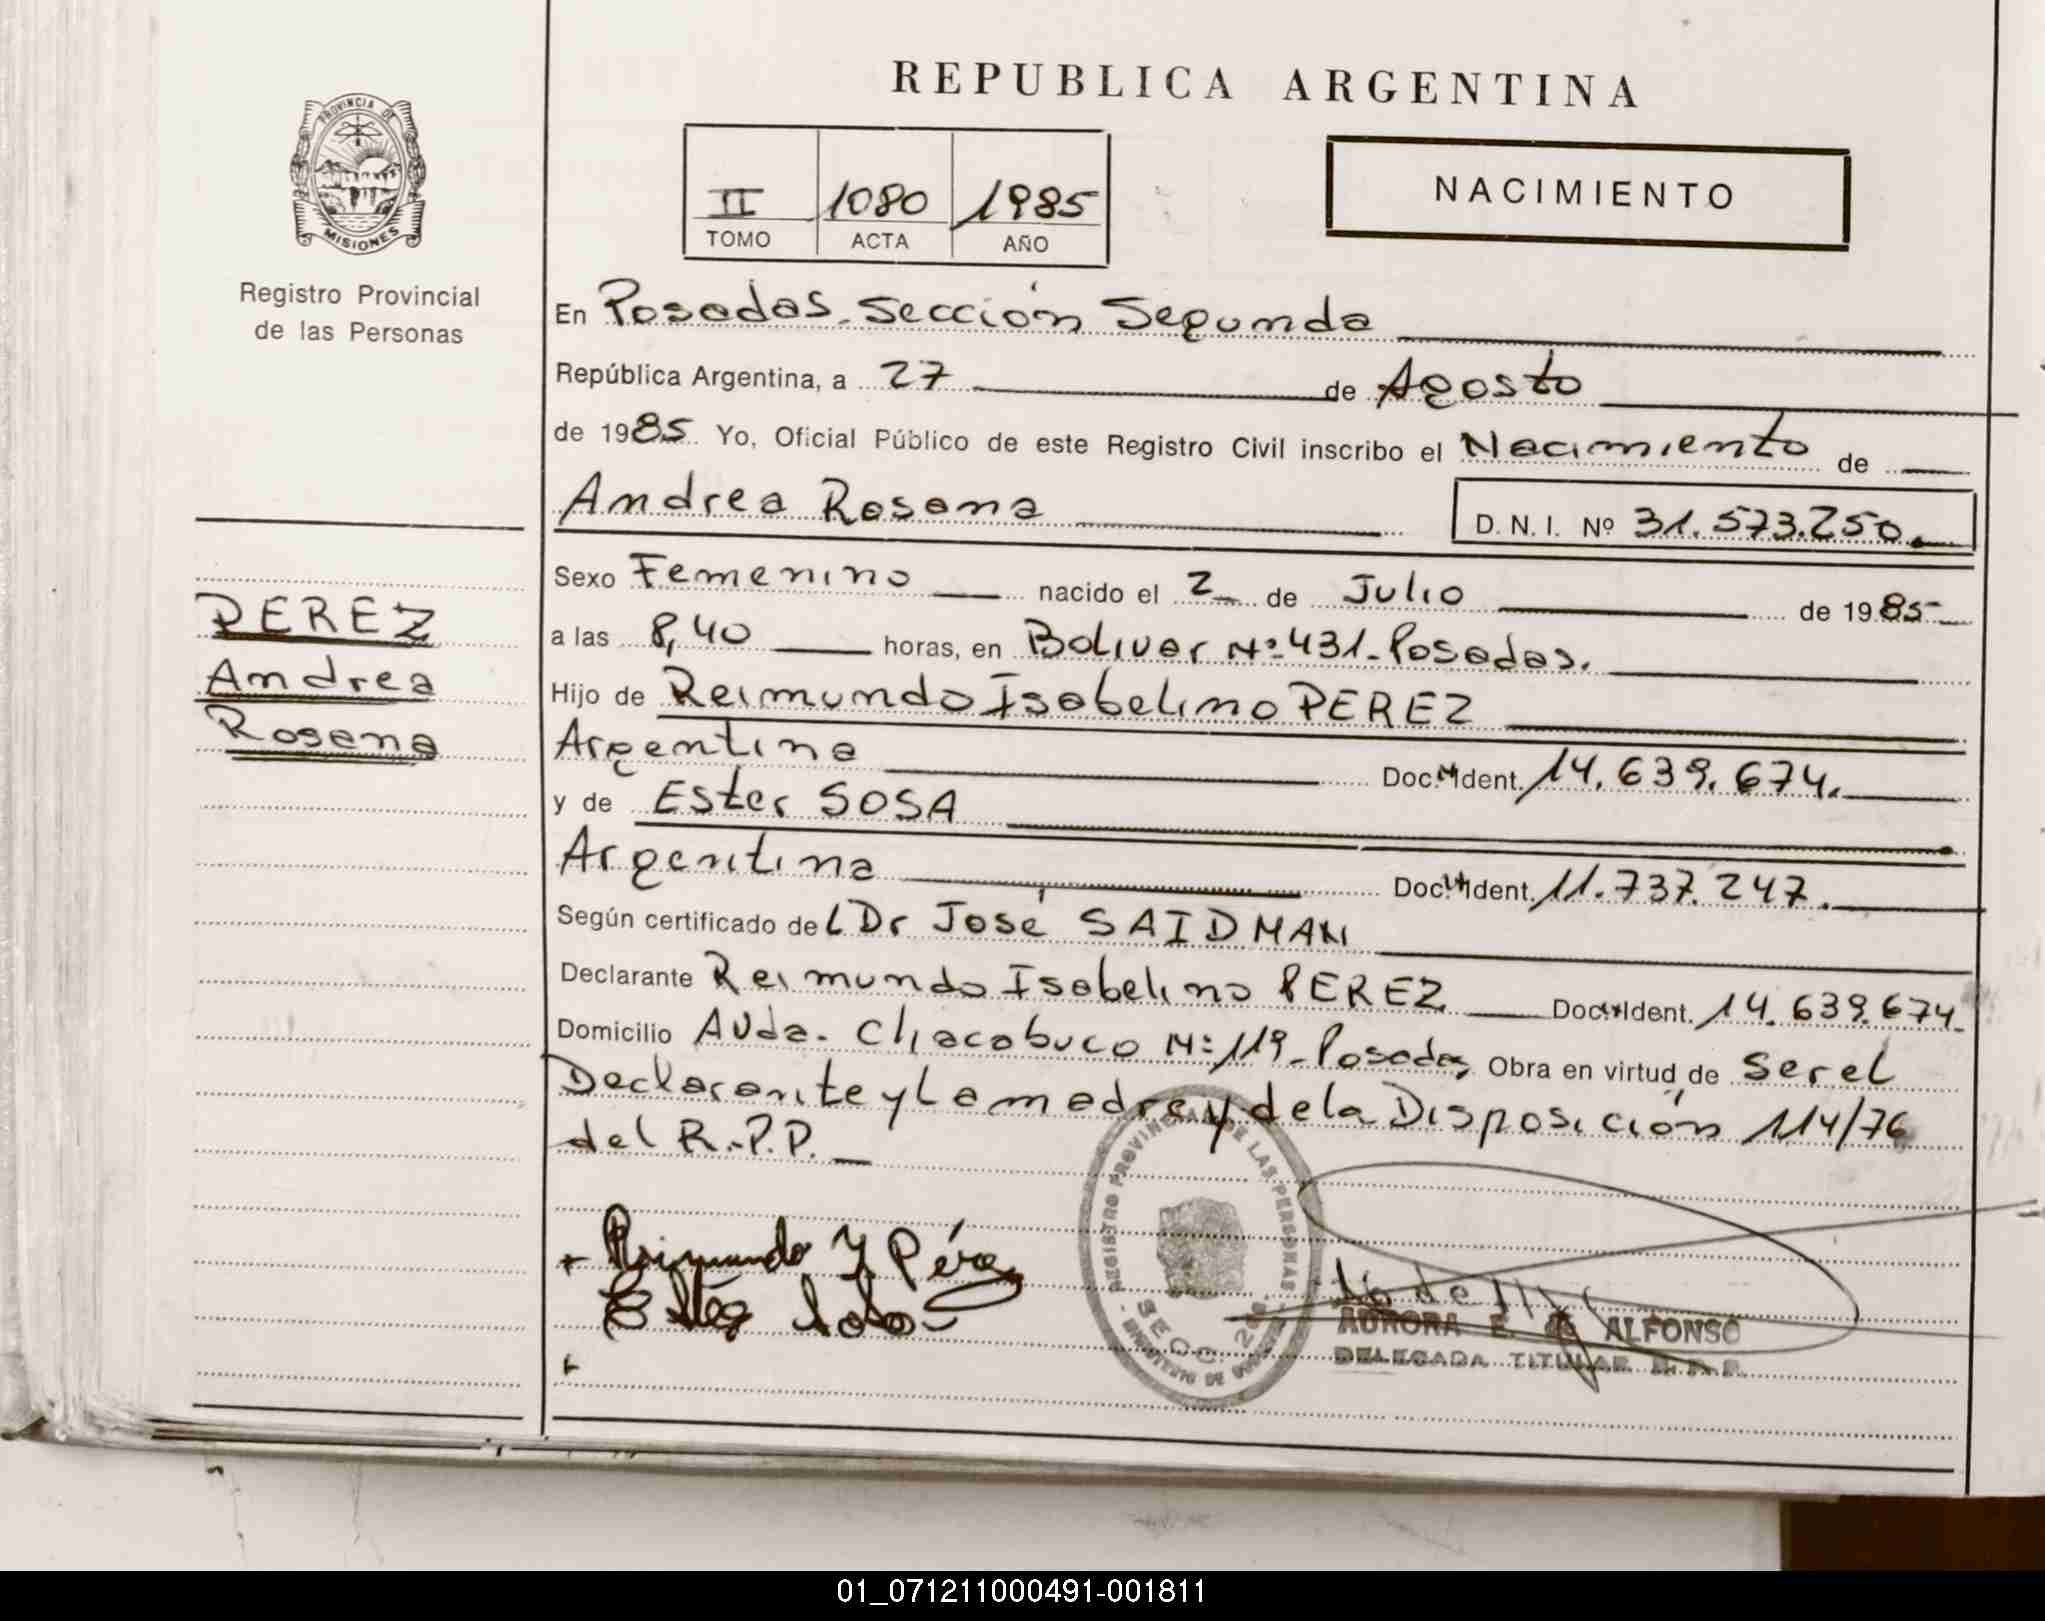 REPUBLICA ARGENTINA
PROVINCIA DE
MISIONES
Registro Provincial
de las Personas
II 1080 1985
TOMO ACTA AÑO
NACIMIENTO
En Posadas. Sección Segunda
República Argentina, a 27 de Agosto
de 1985 Yo, Oficial Público de este Registro Civil inscribo el Nacimiento de
Andrea Rosana D. N. I. Nº 31.573.250.
PEREZ
Andrea
Rosana
Sexo Femenino nacido el 2 de Julio de 1985
a las 8,40 horas, en Bolivar Nº 431. Posadas.
Hijo de Reimundo Isabelino PEREZ
Argentina Doc. Ident. 14.639.674.
y de Ester SOSA
Argentina Doc. Ident. 11.737.247.
Según certificado del Dr José SAIDMAN
Declarante Reimundo Isabelino PEREZ Doc. Ident. 14.639.674.
Domicilio Avda. Chacabuco Nº 119. Posadas Obra en virtud de Ser el
Declarante y La madre y de la Disposición 114/76
del R.P.P.
REGISTRO PROVINCIAL DE LAS PERSONAS
SECC. 2da
Reimundo I Pérez
Ester Sosa
AURORA E. ALFONSO
DELEGADA TITULAR
01_071211000491-001811